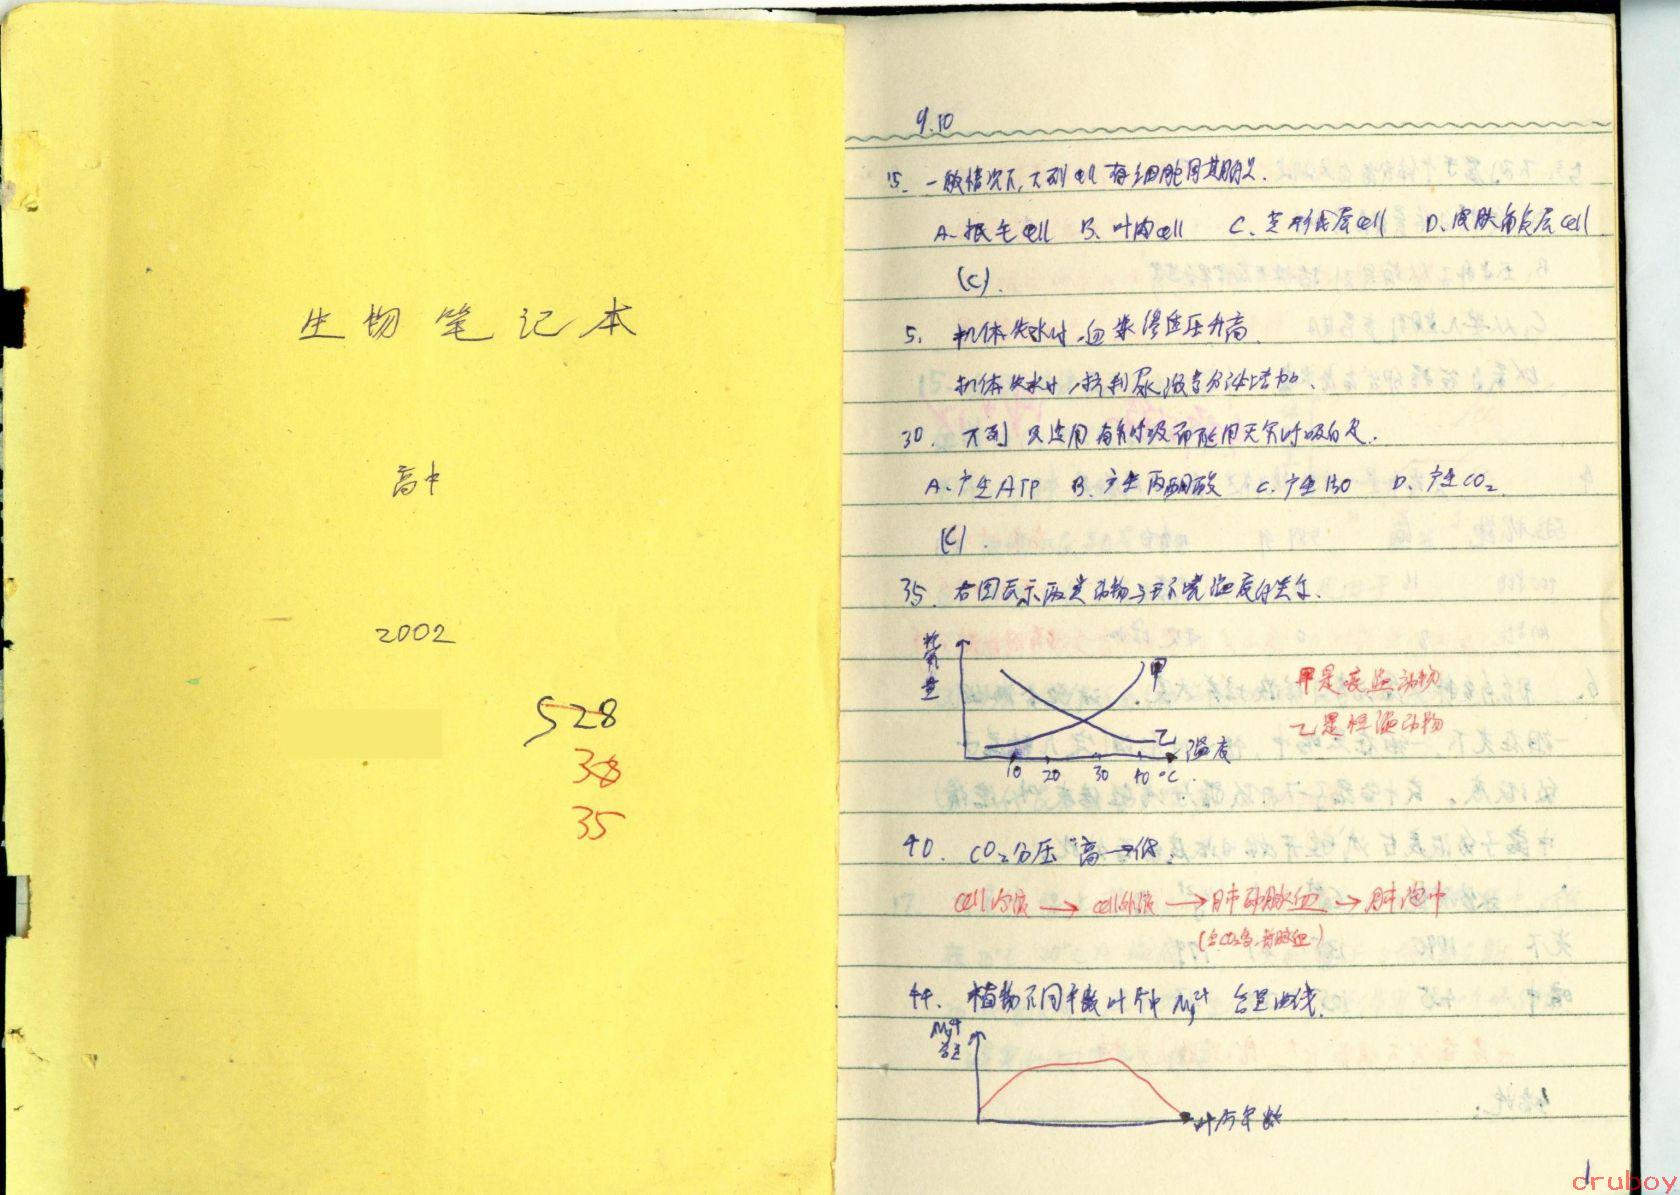 生物笔记本
高中
2002
528
38
35
9.10
15. 一般情况下,下列cell有细胞周期的是.
A. 根毛cell B. 叶肉cell C. 形成层cell D. 皮肤角质层cell
(C).
5. 机体失水时,血浆渗透压升高
机体失水时,抗利尿激素分泌增加.
30. 下列 只适用有氧呼吸而不适用无氧呼吸的是.
A. 产生ATP B. 产生丙酮酸 C. 产生H₂O D. 产生CO₂.
(C).
35. 右图表示两类动物与环境温度的关系.
耗氧量
甲
乙
温度
10 20 30 40 ℃.
甲是变温动物
乙是恒温动物
40. CO₂分压 高→低.
cell内液 → cell外液 → 肺动脉血 → 肺泡中
(含CO₂多,静脉血)
44. 植物不同年龄叶片中 Mg²⁺ 含量曲线.
Mg²⁺
含量
叶片年龄
1
cruboy